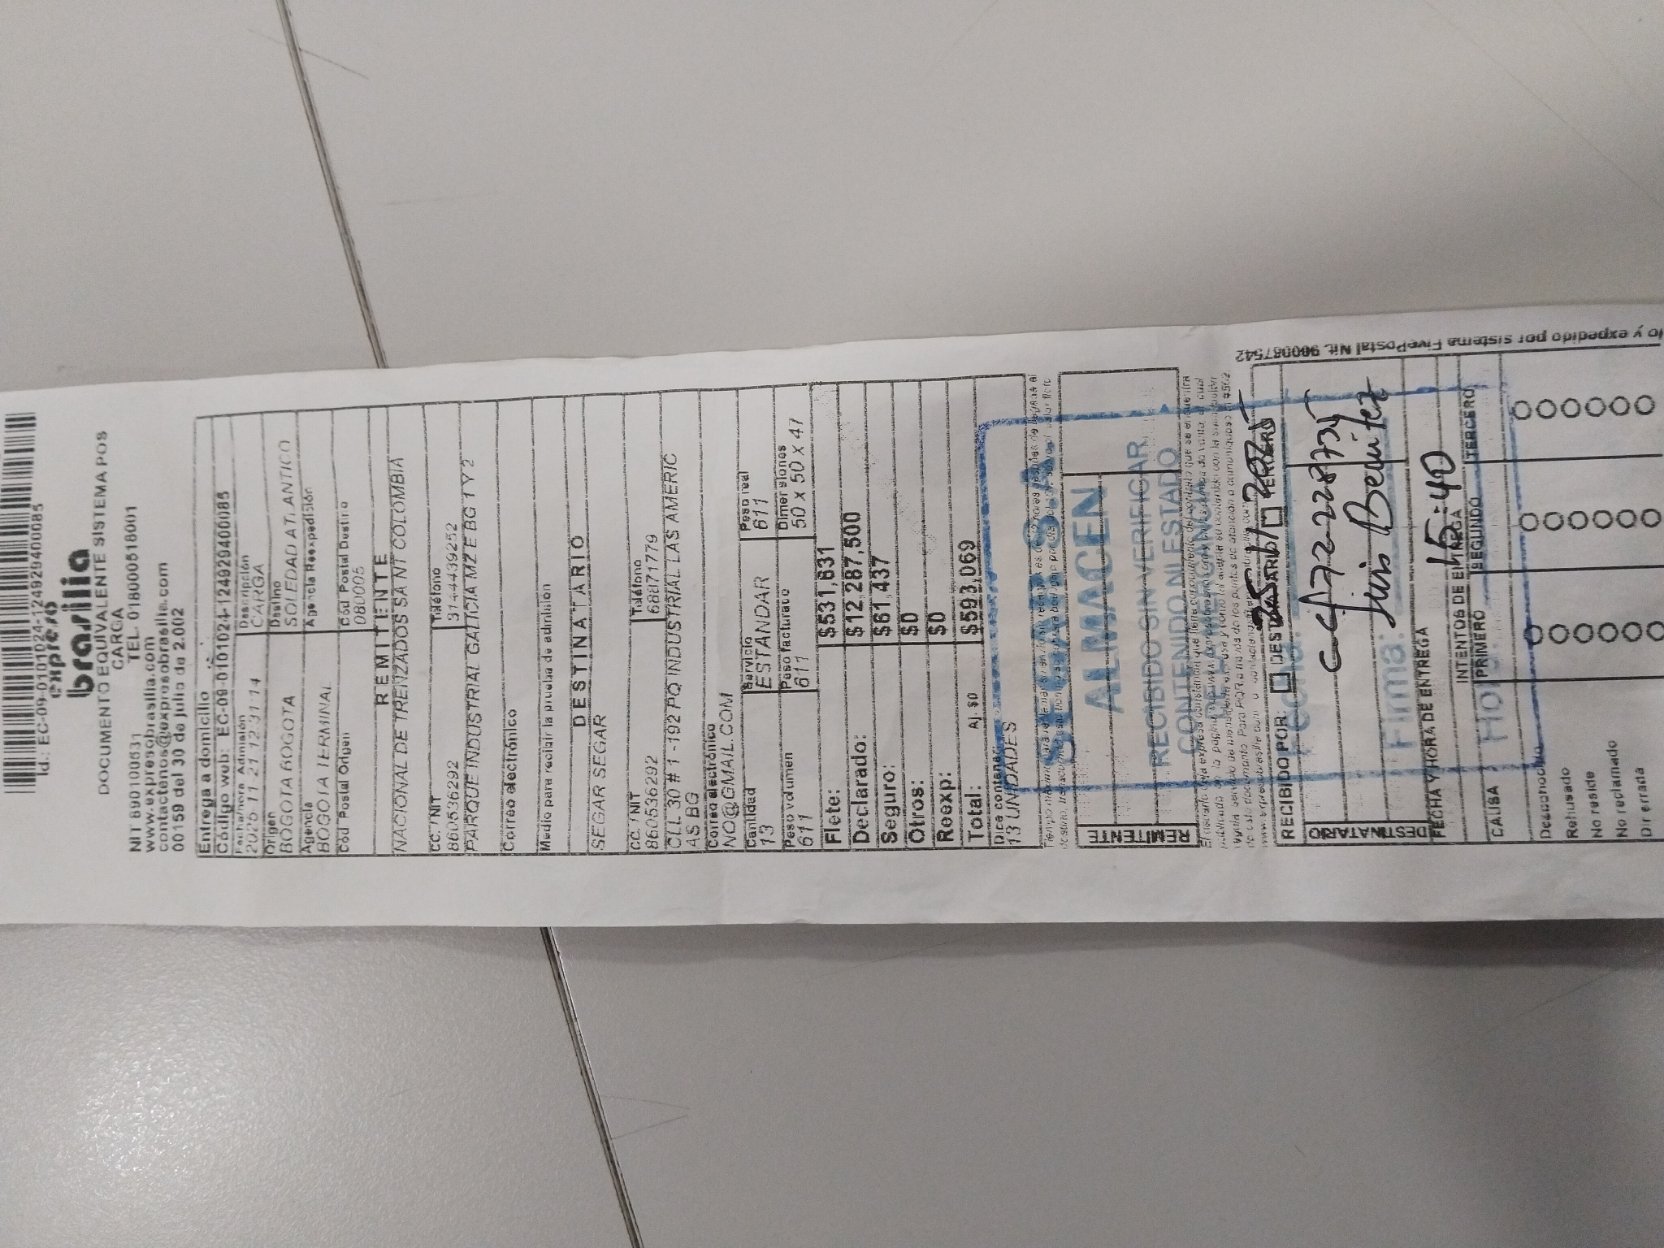 Id.: EC-09-0101024-12492940085
expreso
brasilia
DOCUMENTO EQUIVALENTE SISTEMA POS
CARGA
NIT 890100531 TEL. 018000518001
www.expresobrasilia.com
contactenos@expresobrasilia.com
00159 del 30 de julio de 2.002
Entrega a domicilio
Código web: EC-09-0101024-12492940085
Fecha/Hora Admisión Descripción
2025 11 21 12:31:14 CARGA
Origen Destino
BOGOTA BOGOTA SOLEDAD ATLANTICO
Agencia Agencia Reexpedición
BOGOTA TERMINAL
Cod Postal Origen Cod Postal Destino
080005
REMITENTE
NACIONAL DE TRENZADOS SA NT COLOMBIA
CC. / NIT Teléfono
860536292 3144439252
PARQUE INDUSTRIAL GALICIA MZ E BG 1 Y 2
Correo electrónico
Medio para recibir la prueba de admisión
DESTINATARIO
SEGAR SEGAR
CC. / NIT Teléfono
860536292 688171779
CLL 30 # 1 -192 PQ INDUSTRIAL LAS AMERIC
AS BG
Correo electrónico
NO@GMAIL.COM
Cantidad Servicio Peso real
13 ESTANDAR 611
Peso volumen Peso facturado Dimensiones
611 611 50 x 50 x 47
Flete: $531,631
Declarado: $12,287,500
Seguro: $61,437
Otros: $0
Reexp: $0
Total: Aj. $0 $593,069
Dice contener:
13 UNIDADES
REMITENTE
ALMACEN
RECIBIDO SIN VERIFICAR
CONTENIDO NI ESTADO
RECIBIDO POR: DESTINATARIO TERCERO
Fecha:
DESTINATARIO
Luis Benitez
Firma:
FECHA Y HORA DE ENTREGA 15:40
INTENTOS DE ENTREGA
CAUSA PRIMERO SEGUNDO TERCERO
Hora:
Desconocido
Rehusado
No reside
No reclamado
Dir errada
lo y expedido por sistema FivePostal Nit. 900087542